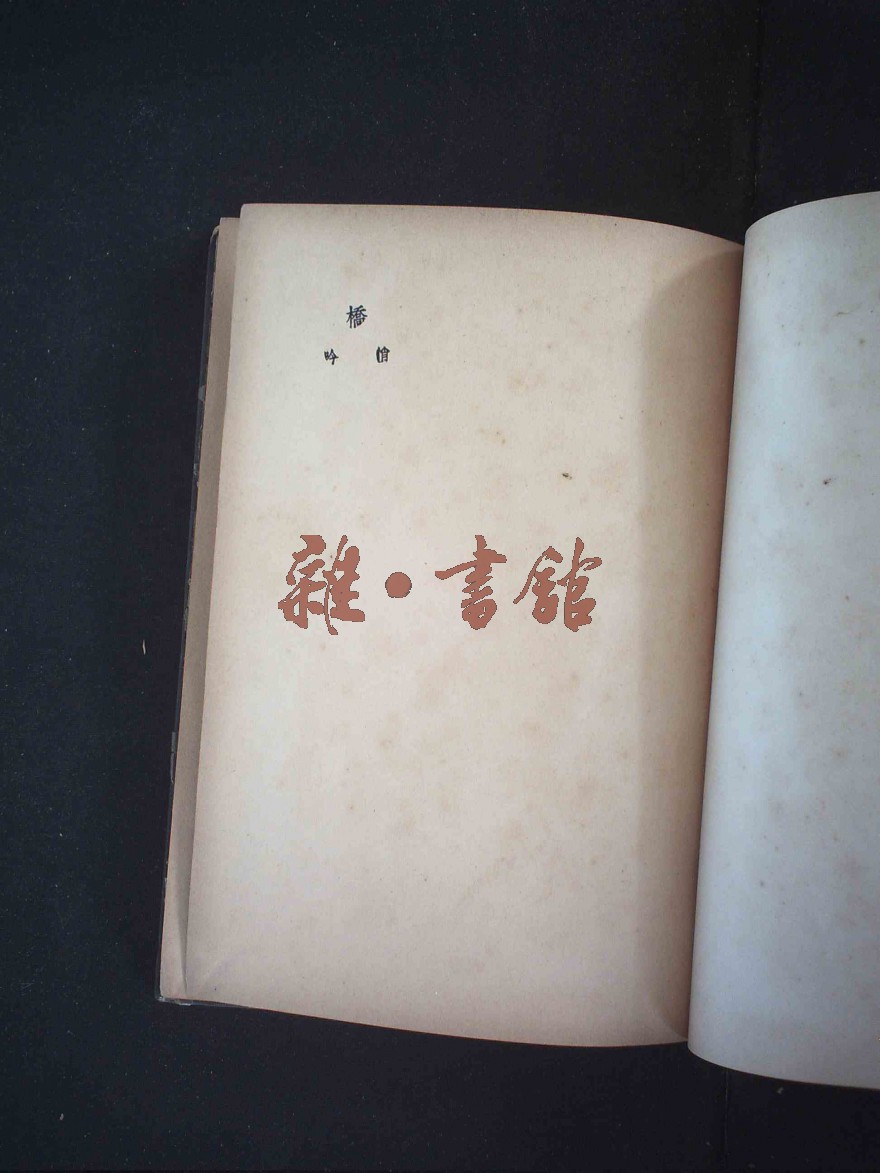 橋
悄吟
雜·書館